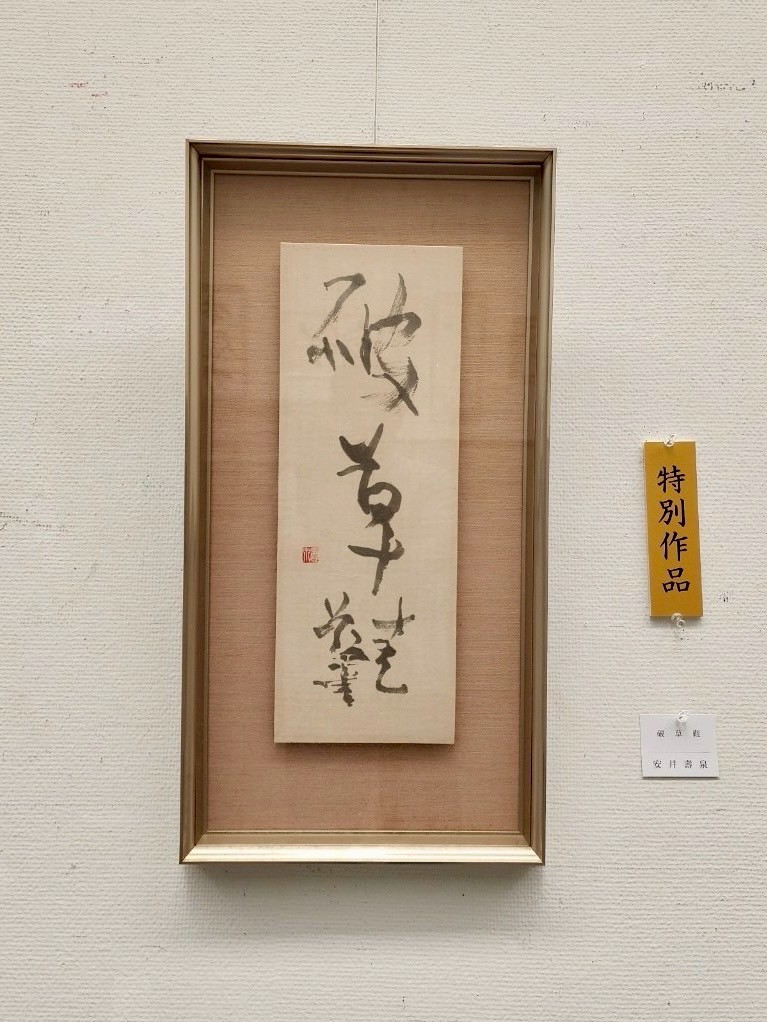 破草鞋
特別作品
破草鞋
安井壽泉